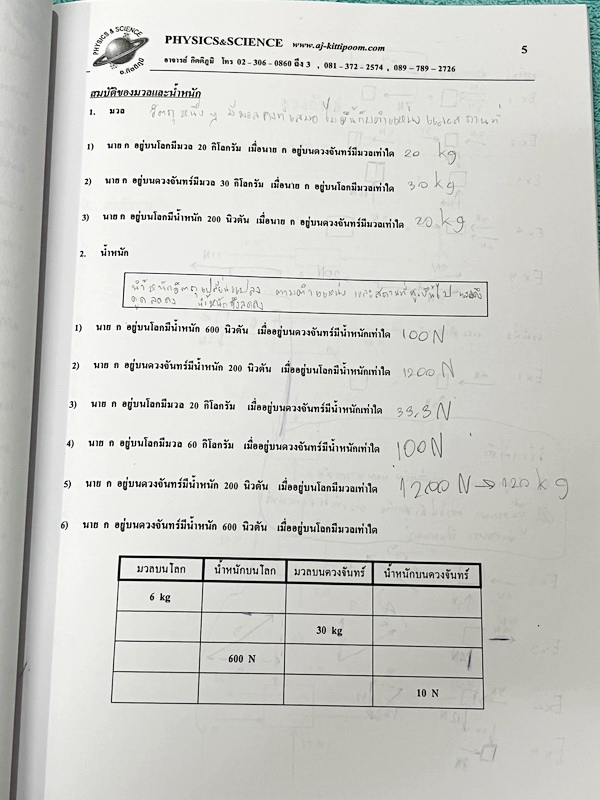 PHYSICS & SCIENCE
อ.กิตติภูมิ
PHYSICS&SCIENCE www.aj-kittipoom.com
5
อาจารย์ กิตติภูมิ โทร 02-306-0860 ถึง 3 , 081-372-2574 , 089-789-2726
สมบัติของมวลและน้ำหนัก
1. มวล วัตถุหนึ่ง ๆ มีมวลคงที่เสมอ ไม่ขึ้นกับตำแหน่งและสถานที่
1) นาย ก อยู่บนโลกมีมวล 20 กิโลกรัม เมื่อนาย ก อยู่บนดวงจันทร์มีมวลเท่าใด 20 kg
2) นาย ก อยู่บนดวงจันทร์มีมวล 30 กิโลกรัม เมื่อนาย ก อยู่บนโลกมีมวลเท่าใด 30 kg
3) นาย ก อยู่บนโลกมีน้ำหนัก 200 นิวตัน เมื่อนาย ก อยู่บนดวงจันทร์มีมวลเท่าใด 20 kg
2. น้ำหนัก
น้ำหนักวัตถุเปลี่ยนแปลง ตามตำแหน่ง และสถานที่ แรงดึง
ดูดลดลง น้ำหนักจึงลดลง
1) นาย ก อยู่บนโลกมีน้ำหนัก 600 นิวตัน เมื่ออยู่บนดวงจันทร์มีน้ำหนักเท่าใด 100 N
2) นาย ก อยู่บนดวงจันทร์มีน้ำหนัก 200 นิวตัน เมื่ออยู่บนโลกมีน้ำหนักเท่าใด 1200 N
3) นาย ก อยู่บนโลกมีมวล 20 กิโลกรัม เมื่ออยู่บนดวงจันทร์มีน้ำหนักเท่าใด 33.3 N
4) นาย ก อยู่บนโลกมีมวล 60 กิโลกรัม เมื่ออยู่บนดวงจันทร์มีน้ำหนักเท่าใด 100 N
5) นาย ก อยู่บนดวงจันทร์มีน้ำหนัก 200 นิวตัน เมื่ออยู่บนโลกมีมวลเท่าใด 1200 N → 120 kg
6) นาย ก อยู่บนดวงจันทร์มีน้ำหนัก 600 นิวตัน เมื่ออยู่บนโลกมีมวลเท่าใด
มวลบนโลก น้ำหนักบนโลก มวลบนดวงจันทร์ น้ำหนักบนดวงจันทร์
6 kg
30 kg
600 N
10 N